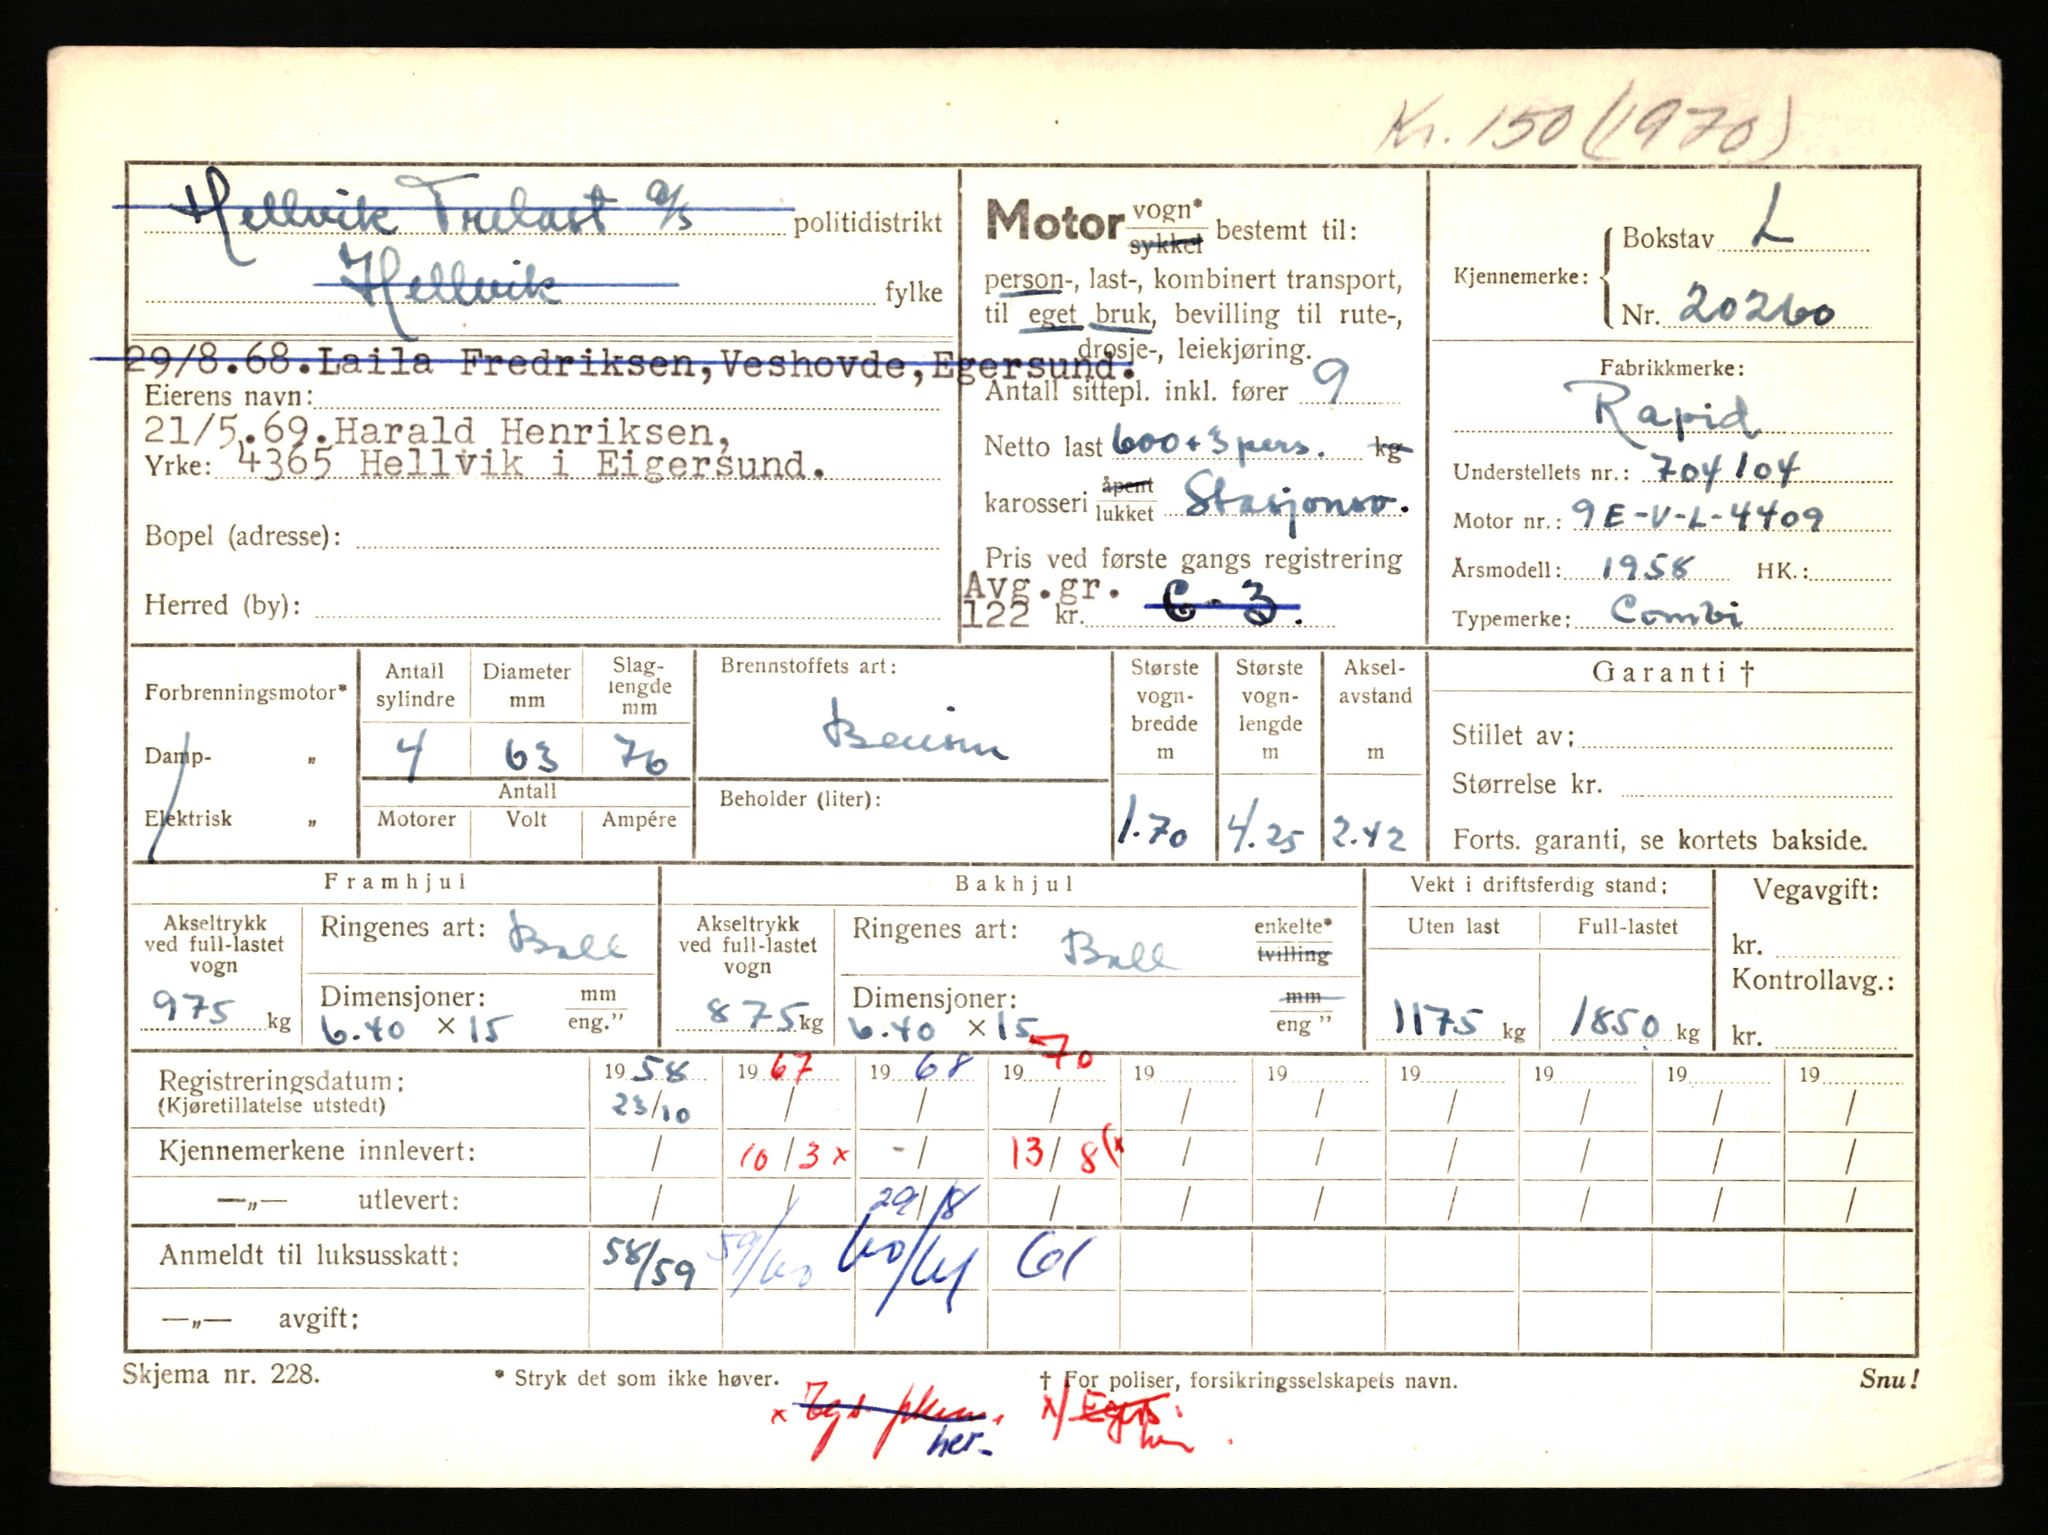 Kr. 150 (1970)
Hellvik Trelast a/s politidistrikt
Hellvik fylke
29/8.68. Laila Fredriksen, Veshovde, Egersund.
Eierens navn:
21/5.69. Harald Henriksen,
Yrke: 4365 Hellvik i Eigersund.
Bopel (adresse):
Herred (by):
Motor vogn* sykkel bestemt til:
person-, last-, kombinert transport,
til eget bruk, bevilling til rute-,
drosje-, leiekjøring.
Antall sittepl. inkl. fører 9
Netto last 600 + 3 pers. kg
karosseri åpent lukket Stasjonsv.
Pris ved første gangs registrering
Avg.gr. C-3
122 kr.
Kjennemerke: Bokstav L
Nr. 20260
Fabrikkmerke:
Rapid
Understellets nr.: 704104
Motor nr.: 9E-V-L-4409
Årsmodell: 1958 HK.:
Typemerke: Combi
Forbrenningsmotor*
Damp- "
Elektrisk "
Antall sylindre 4
Diameter mm 63
Slaglengde mm 76
Antall
Motorer Volt Ampére
Brennstoffets art:
Bensin
Beholder (liter):
Største vognbredde m 1.70
Største vognlengde m 4.25
Akselavstand m 2.42
Garanti †
Stillet av:
Størrelse kr.
Forts. garanti, se kortets bakside.
Framhjul
Akseltrykk ved full-lastet vogn 975 kg
Ringenes art: Ball
Dimensjoner: mm eng."
6.40 × 15
Bakhjul
Akseltrykk ved full-lastet vogn 875 kg
Ringenes art: Ball enkelte* tvilling
Dimensjoner: mm eng "
6.40 × 15
Vekt i driftsferdig stand:
Uten last Full-lastet
1175 kg 1850 kg
Vegavgift:
kr.
Kontrollavg.:
kr.
Registreringsdatum: 1958 1967 1968 1970 19 19 19 19 19 19
(Kjøretillatelse utstedt) 23/10 / / / / / / / / /
Kjennemerkene innlevert: / 10/3 x -/ 13/8 (x / / / / / /
—„— utlevert: / / 29/8 / / / / / / /
Anmeldt til luksusskatt: 58/59 59/60 60/61 61
—„— avgift:
Skjema nr. 228. * Stryk det som ikke høver. † For poliser, forsikringsselskapets navn. Snu!
x x/
her.